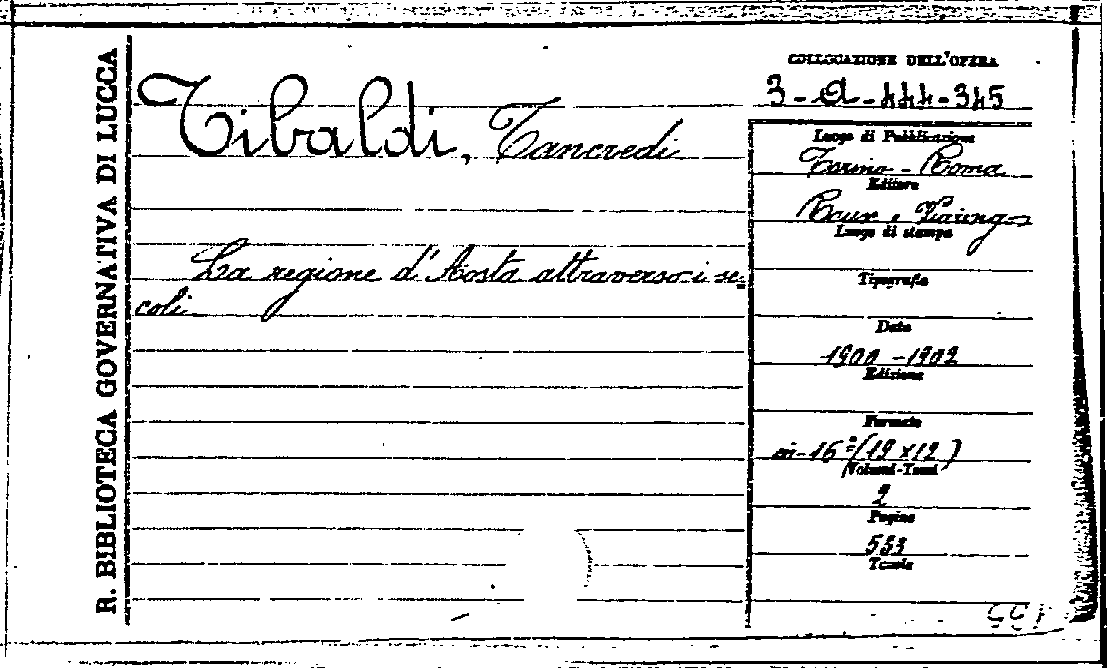 R. BIBLIOTECA GOVERNATIVA DI LUCCA
Tibaldi, Tancredi
La regione d'Aosta attraverso i se=
coli
COLLOCAZIONE DELL'OPERA
3-a-444-345
Luogo di Pubblicazione
Torino - Roma
Editore
Roux e
Luogo di stampa
Tipografia
Data
1900 - 1902
Edizione
Formato
in-16º (19 x 12)
Volumi-Tomi
2
Pagine
553
Tavole